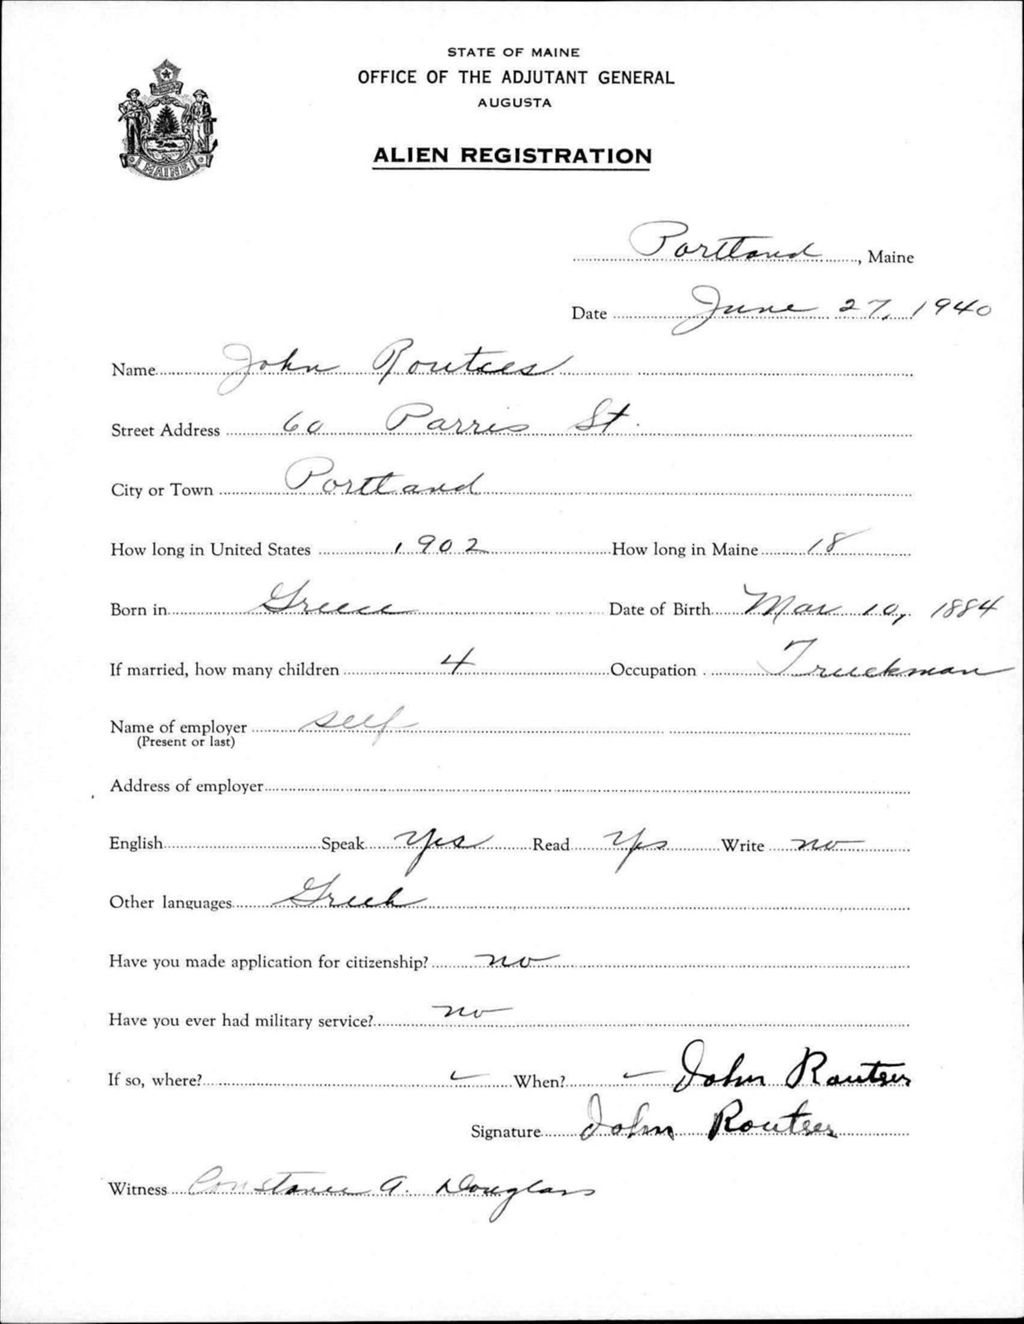 STATE OF MAINE
OFFICE OF THE ADJUTANT GENERAL
AUGUSTA
ALIEN REGISTRATION
MAINE
Portland, Maine
Date June 27, 1940
Name John Routses
Street Address 60 Parris St.
City or Town Portland
How long in United States 1902 How long in Maine 18
Born in Greece Date of Birth Mar 10, 1884
If married, how many children 4 Occupation Truckman
Name of employer self
(Present or last)
Address of employer
English Speak Yes Read Yes Write no
Other languages Greek
Have you made application for citizenship? no
Have you ever had military service? no
If so, where? – When? – John
Signature John
Witness Constance A. Douglass